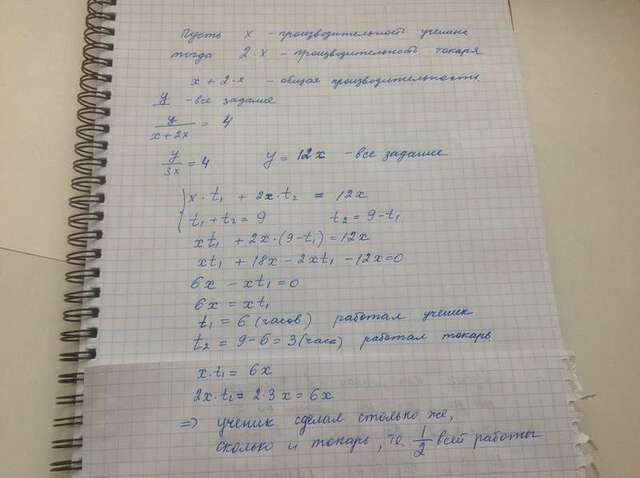 Пусть x - производительность ученика
тогда 2·x - производительность токаря
x + 2·x - общая производительность
y - все задание
y/(x+2x) = 4
y/3x = 4 y = 12x - все задание
{ x·t₁ + 2x·t₂ = 12x
t₁ + t₂ = 9 t₂ = 9-t₁
xt₁ + 2x·(9-t₁) = 12x
xt₁ + 18x - 2xt₁ - 12x = 0
6x - xt₁ = 0
6x = xt₁
t₁ = 6 (часов) работал ученик
t₂ = 9-6 = 3 (часа) работал токарь
x·t₁ = 6x
2x·t₂ = 2·3x = 6x
=> ученик сделал столько же,
сколько и токарь, те 1/2 всей работы